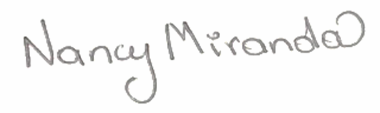 Nancy Miranda